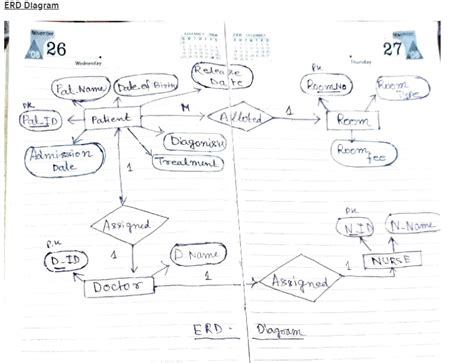 ERD Diagram
November
26
Wednesday
Thursday
27
Pat_Name
Date of Birth
Release
Date
PK
Pat_ID
Patient
M
Alloted
1
Room
PK
RoomNo
Room
Type
Room
fee
Admission
Date
Diagonisis
Treatment
1
Assigned
1
P.K
D_ID
D_Name
Doctor
1
Assigned
1
NURSE
PK
N_ID
N-Name
ERD - Diagram